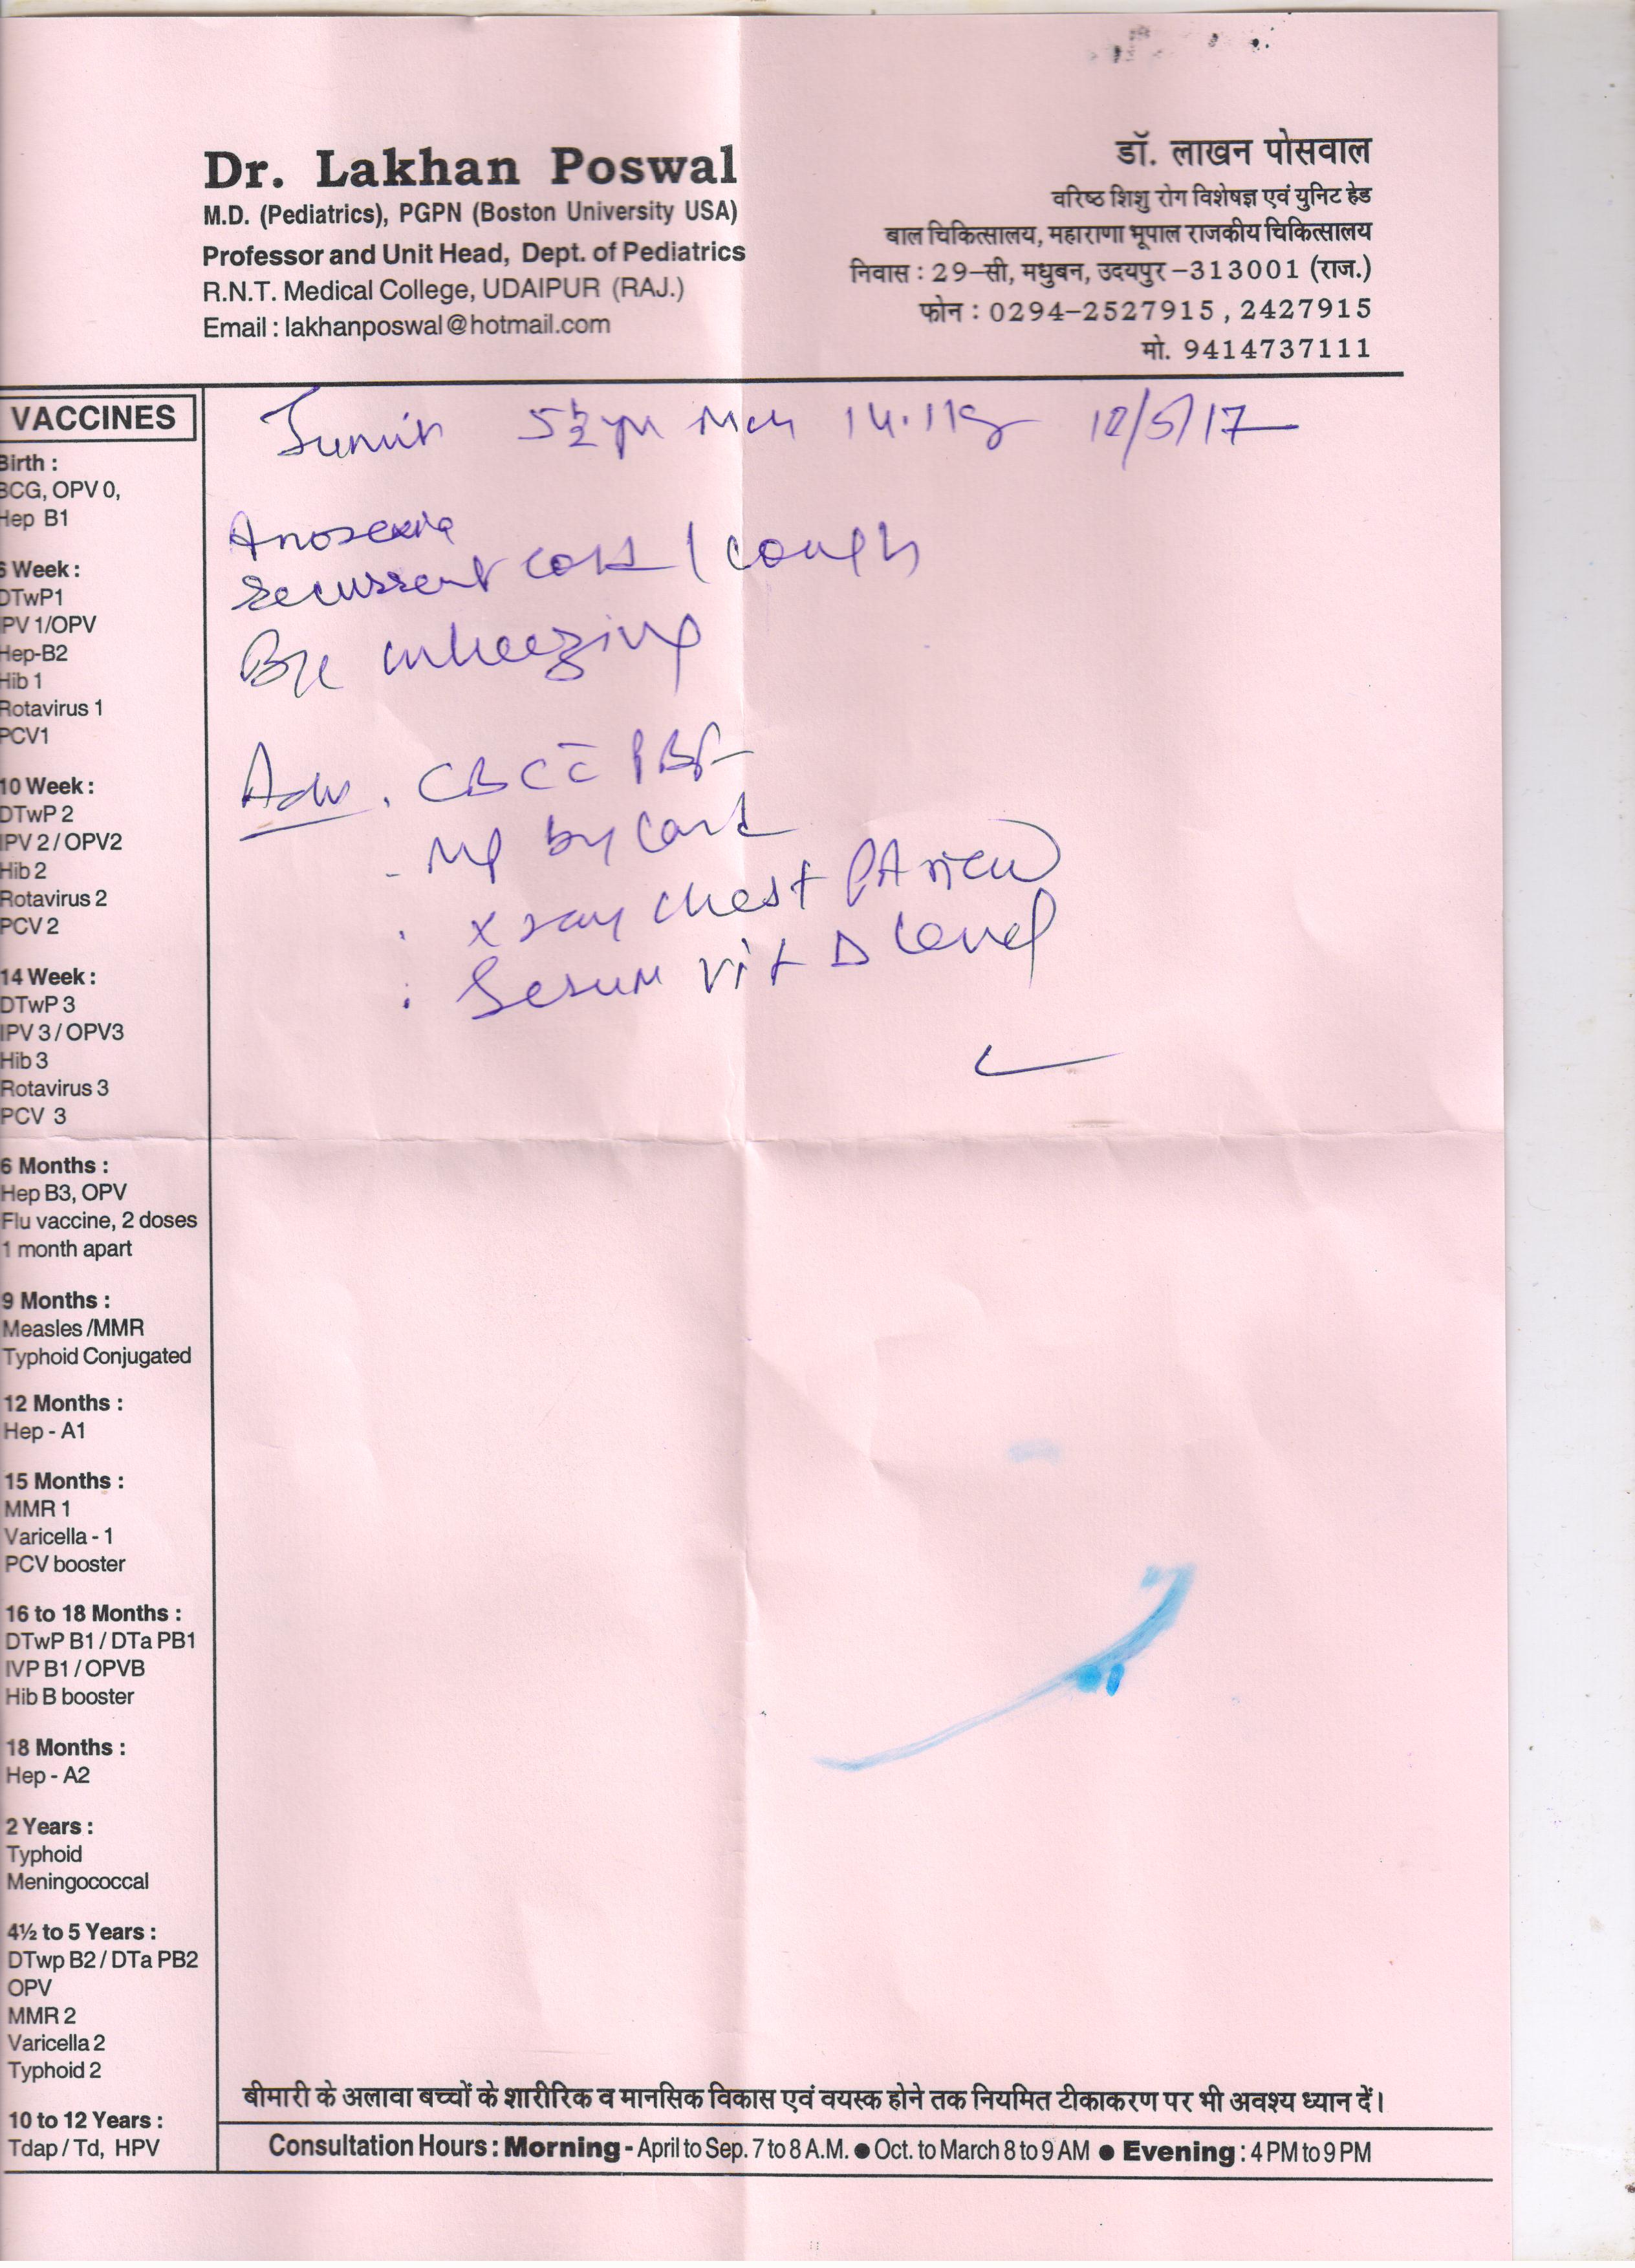 Dr. Lakhan Poswal
M.D. (Pediatrics), PGPN (Boston University USA)
Professor and Unit Head, Dept. of Pediatrics
R.N.T. Medical College, UDAIPUR (RAJ.)
Email : lakhanposwal@hotmail.com
डॉ. लाखन पोसवाल
वरिष्ठ शिशु रोग विशेषज्ञ एवं युनिट हेड
बाल चिकित्सालय, महाराणा भूपाल राजकीय चिकित्सालय
निवास : 29-सी, मधुबन, उदयपुर-313001 (राज.)
फोन : 0294-2527915 , 2427915
मो. 9414737111
VACCINES
Birth :
BCG, OPV 0,
Hep B1
6 Week :
DTwP1
IPV 1/OPV
Hep-B2
Hib 1
Rotavirus 1
PCV1
10 Week :
DTwP 2
IPV 2 / OPV2
Hib 2
Rotavirus 2
PCV 2
14 Week :
DTwP 3
IPV 3 / OPV3
Hib 3
Rotavirus 3
PCV 3
6 Months :
Hep B3, OPV
Flu vaccine, 2 doses
1 month apart
9 Months :
Measles /MMR
Typhoid Conjugated
12 Months :
Hep - A1
15 Months :
MMR 1
Varicella - 1
PCV booster
16 to 18 Months :
DTwP B1 / DTa PB1
IVP B1 / OPVB
Hib B booster
18 Months :
Hep - A2
2 Years :
Typhoid
Meningococcal
4½ to 5 Years :
DTwp B2 / DTa PB2
OPV
MMR 2
Varicella 2
Typhoid 2
10 to 12 Years :
Tdap / Td, HPV
5½ yr 14.1 kg 12/5/17
Anorexia
recurrent cold / cough
B/L wheezing
Adv . CBC c̄ PBF
- MP by Card
. X ray chest PA view
: Serum vit D level
बीमारी के अलावा बच्चों के शारीरिक व मानसिक विकास एवं वयस्क होने तक नियमित टीकाकरण पर भी अवश्य ध्यान दें।
Consultation Hours : Morning - April to Sep. 7 to 8 A.M. ● Oct. to March 8 to 9 AM ● Evening : 4 PM to 9 PM